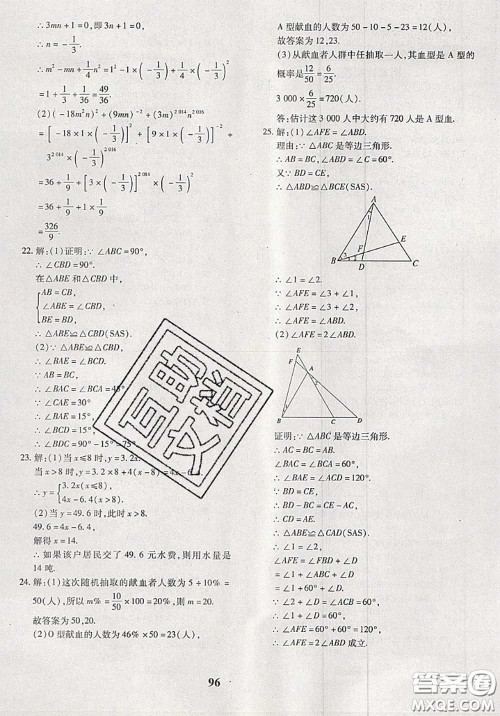 ∴3mn+1=0,即3n=-1/m.
∴n=-1/3m.
∴m²-m+1/4n²=1²-1×(-1/3)+1/4×(-1/3)²
=1+1/3+1/36=49/36.
=[-18×1×(-1/3)]²+[9×1×(-1/3)²]
=36+1/9×1
=36+1/9
=326/9
22.解:(1)证明:∵∠ABC=90°,
∴∠CBD=90°.
在△ABE和△CBD中,
AB=CB,
∠ABE=∠CBD,
BE=BD,
∴△ABE≌△CBD(SAS).
(2)∵△ABE≌△CBD,
∴∠BAE=∠BCD.
∵AB=CB,
∴∠BAC=45°.
∵∠CAE=30°,
∴∠BAE=15°.
∴∠BCD=15°.
∴∠BDC=90°-15°=75°.
23.解:(1)当x≤8时,y=3.2x;
当x>8时,y=3.2×8+4(x-8)=4x-6.4.
∴y={3.2x(x≤8), 4x-6.4(x>8).
(2)当y=49.6时,此时x>8.
49.6=4x-6.4,
解得x=14.
∴如果该户居民交了49.6元水费,则用水量是
14吨.
24.解:(1)这次随机抽取的献血者人数为5÷10%=
50(人),所以m%=10/50×100=20%,则m=20.
故答案为50,20.
(2)O型献血的人数为46%×50=23(人),
A型献血的人数为50-10-5-23=12(人),
故答案为12,23.
(3)从献血者人群中任抽取一人,其血型是A型的
概率是12/50=6/25.
3 000×6/25=720(人).
答:估计这3 000人中大约有720人是A型血.
25.解:(1)∠AFE=∠ABD.
理由:∵△ABC是等边三角形.
∴AB=BC,∠ABC=∠C=60°.
又∵BD=CE,
∴△ABD≌△BCE(SAS).
A
B
D
C
E
∴∠1=∠2.
∵∠AFE=∠3+∠1,
∴∠AFE=∠3+∠2.
∴∠AFE=∠ABD.
(2)∠AFE=∠ABD.
E
F
A
B
C
D
证明:∵△ABC是等边三角形.
∴AC=BC=AB.
∴∠BAC=∠BCA=60°,
∵BD=CE,
∴BD-BC=CE-AC.
∴CD=AE,
∴△ABE≌△CAD(SAS).
∴∠ABE=∠CAD.
∵∠AFE=∠FBD+∠D
=∠ABE+60°+∠D
∴∠CAD+∠D=∠ACB=60°,
∴∠AFE=60°+60°=120°.
∴∠AFE=∠ABD成立.
互助
文档
答案圈
MXQE.COM
96